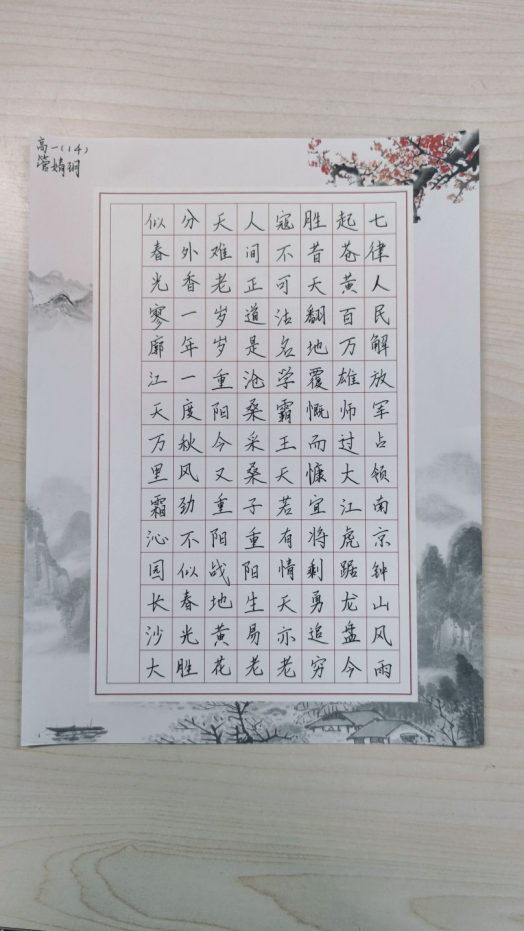 高一(14)
管婧玥
七律人民解放军占领南京钟山风雨
起苍黄百万雄师过大江虎踞龙盘今
胜昔天翻地覆慨而慷宜将剩勇追穷
寇不可沽名学霸王天若有情天亦老
人间正道是沧桑采桑子重阳生易老
天难老岁岁重阳今又重阳战地黄花
分外香一年一度秋风劲不似春光胜
似春光寥廓江天万里霜沁园长沙大